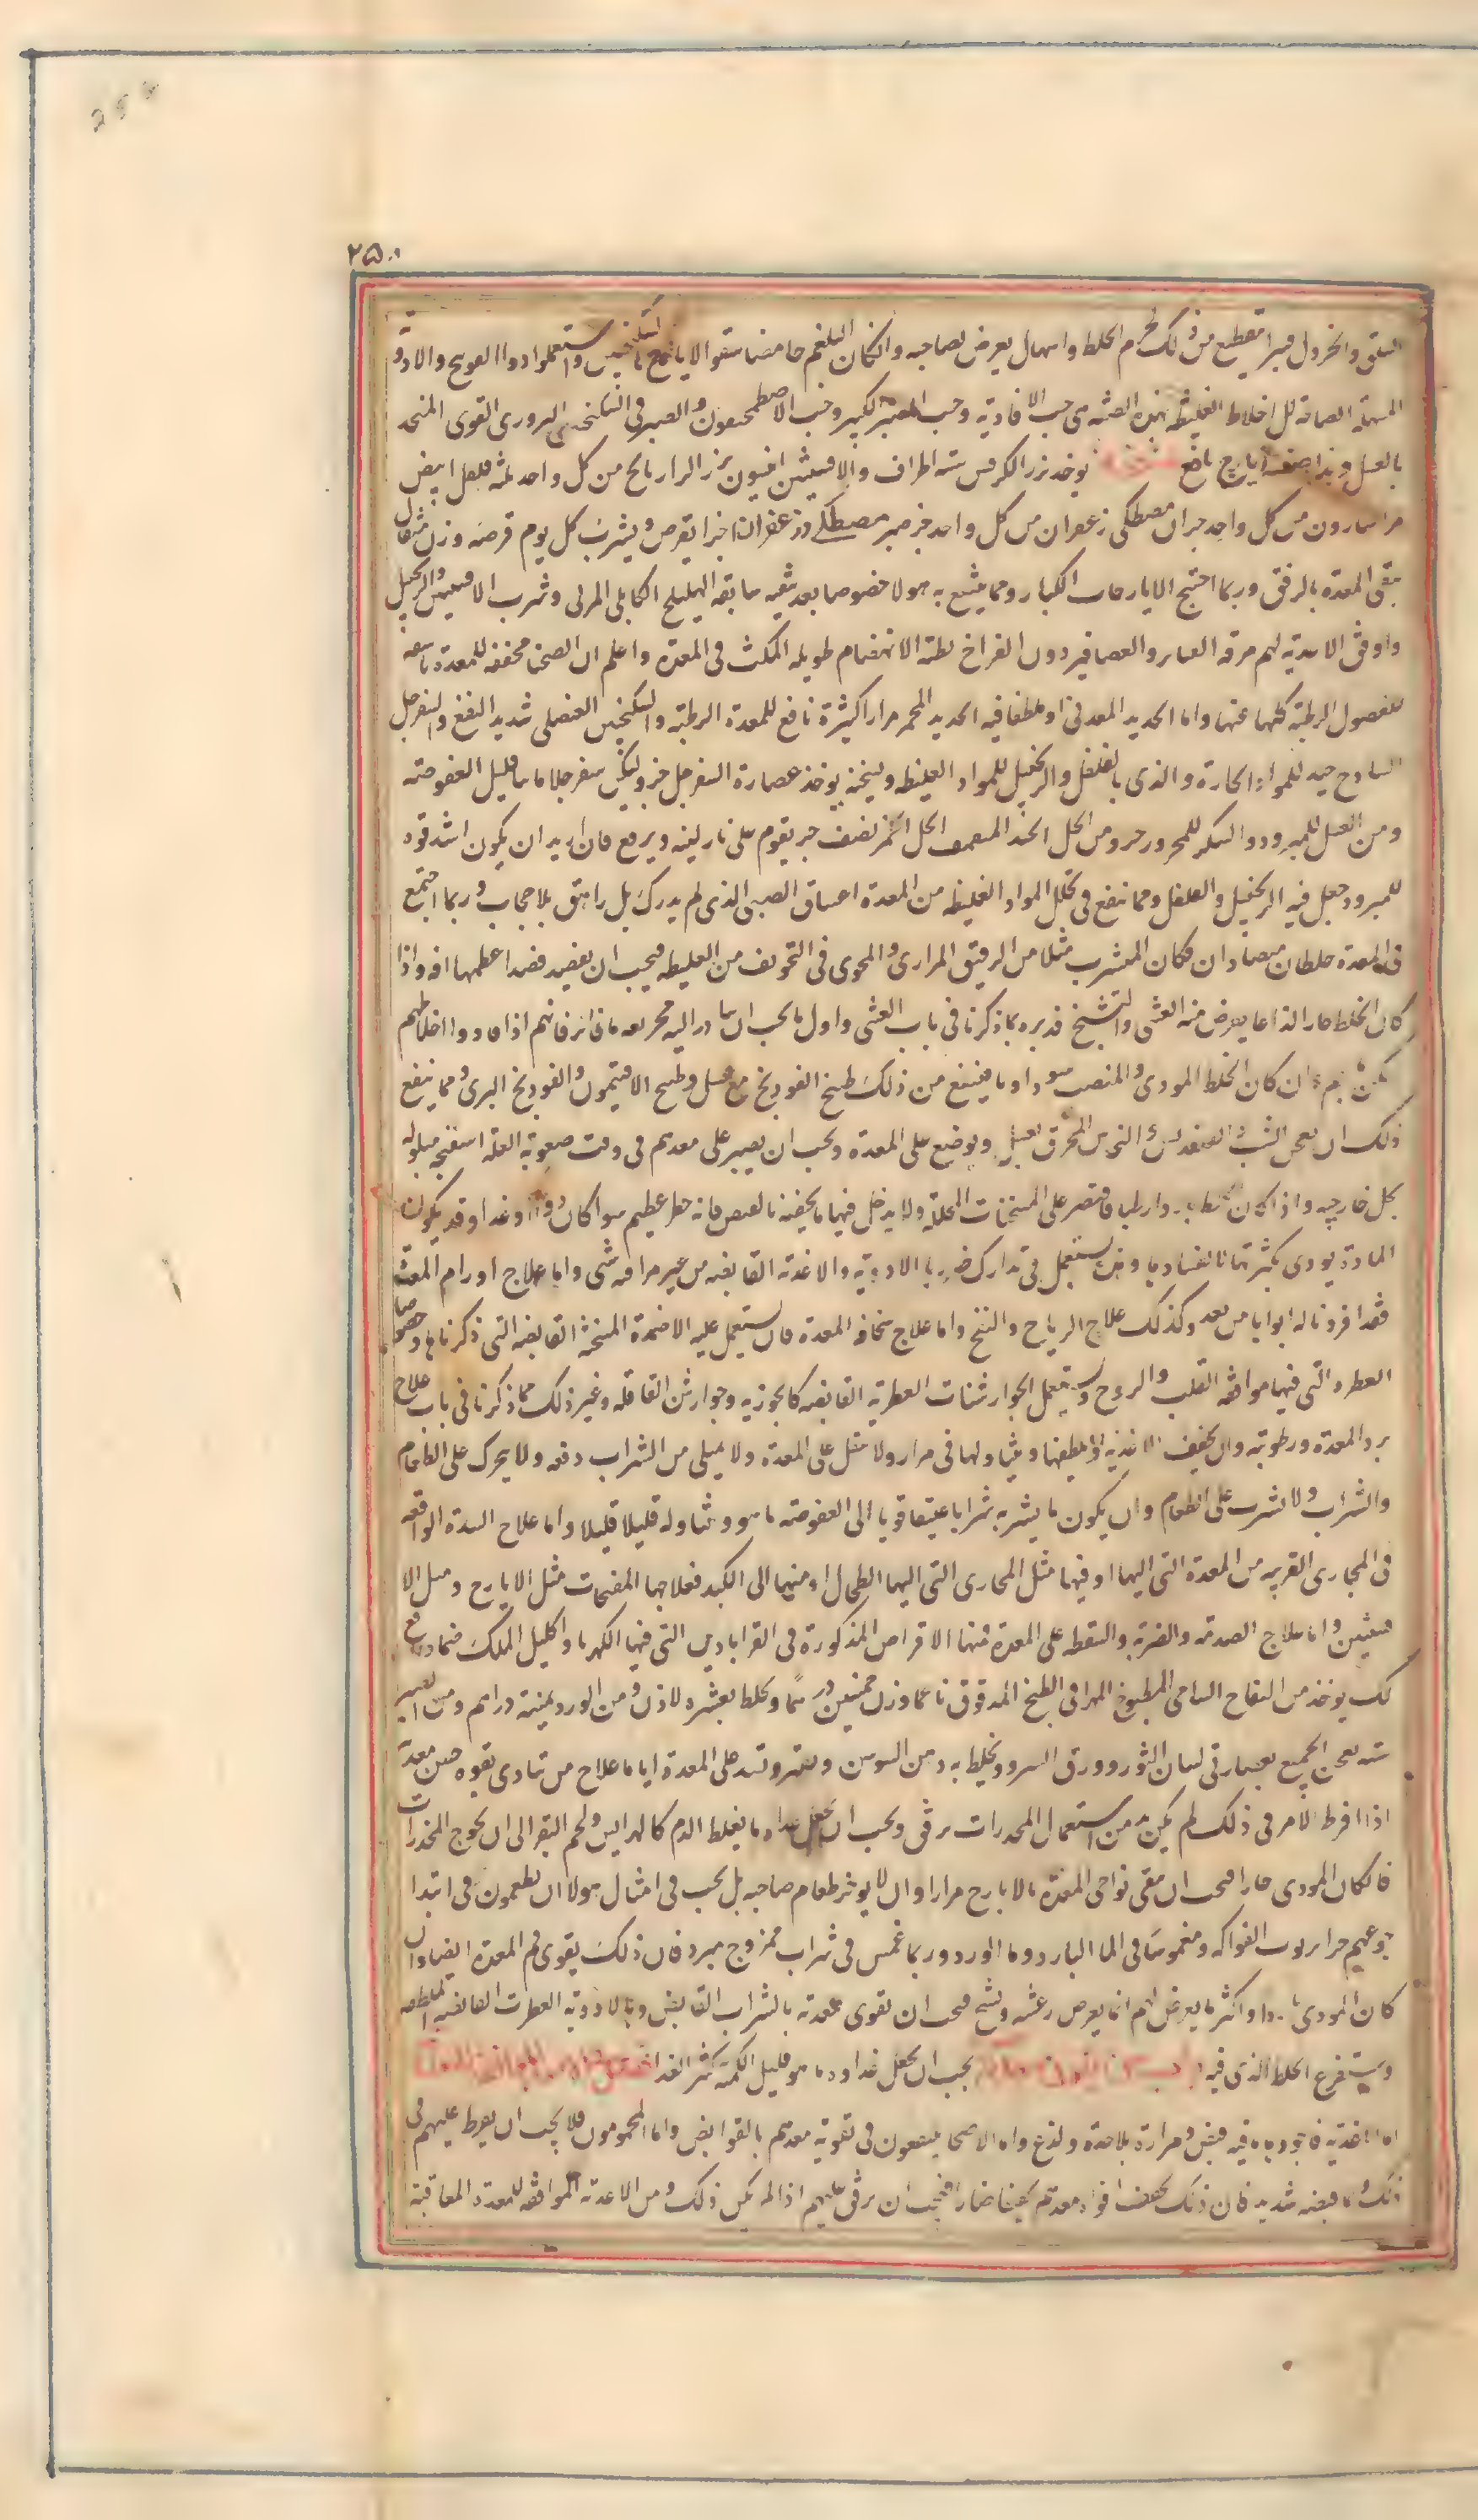 ٢٥٠
السلق والخردل فيبرا تقطع من ذلك لحم الخلط واسهال يعرض لصاحبه وان كان البلغم حامضا سقوا الايارج بالسكنجبين واستعملوا دواء الفوذنج والادوية
المسهلة الصالحة للاخلاط الغليظة بهذه الصفة هى حب الافاويه وحب الصبر الكبير وحب الاصطمحيقون والصبر فى السكنجبين البزورى القوى المتخذ
بالعسل وهذا صفة ايارج نافع يوخذ بزر الكرفس ستة اطراف والافسنتين انيسون بزر الرازيانج من كل واحد ثلثة فلفل ابيض
مر اسارون من كل واحد جزان مصطكى زعفران من كل واحد جزء صبر مصطكى وزعفران اجزا يقرص ويشرب كل يوم قرصة وزن مثقال
ينقى المعدة بالرفق وربما احتيج الايارجات الكبار ومما ينتفع به هولا خصوصا بعد تنقية سابقة الهليلج الكابلى المربى وشرب الافسنتين والزنجبيل
واوفق الاغذية لهم مرقة القنابر والعصافير دون الفراخ بطئة الانهضام طويلة المكث فى المعدة واعلم ان الصحنا مجففة للمعدة ناشفة
للفضول الرطبة كلها عنها واما الحديد المعدنى او يطفا فيه الحديد المحمر مرارا كثيرة نافع للمعدة الرطبة والسكنجبين العنصلى شديد النفع والسفرجل
الساذج جيد للمواد الحارة والذى بالفلفل والزنجبيل للمواد الغليظة ونسخته يوخذ عصارة السفرجل جزو ليكن سفرجلا ماميا قليل العفوصة
ومن العسل للمبرود والسكر للمحرور جزو ومن الخل نصف جزء يقوم على نار لينة ويرفع فان اريد ان يكون اشد قوة
للمبرود جعل فيه الزنجبيل والفلفل ومما ينفع فى تحليل المواد الغليظة من المعدة اعتناق الصبى الذى لم يدرك بل راهق بلا حجاب وربما اجتمع
فى المعدة خلطان متضادان فكان المتشرب مثلا من الرقيق المرارى والمحوى فى التجويف من الغليظ فيجب ان يقصد قصدا اعظمها افة واذا
كان الخلط حارا لذاعا يعرض منه الغشى والتشنج فدبره بما ذكرنا فى باب الغشى واول ما يجب ان يبادر اليه تجريعه ما فاتر فانهم اذا قاوا اخلاطهم
سكن بهم وان كان الخلط الموذى والمنصب سوداويا فينفع من ذلك طبيخ الفوذنج مع عسل وطبيخ الافتيمون والفوذنج البرى ومما ينفع
ذلك ان يعجن الشب والقلقديس والنحاس المحرق بعسل ويوضع على المعدة ويجب ان يصير على معدهم فى وقت صعوبة العلة اسفنجة مبلولة
بخل خارجيه واذا كان باردا رطبا فاقتصر على المسخنات المحللة ولا يدخل فيها ما يجففه بالقبض فانه خطر عظيم سوا كان دوا او غدا وقد يكون
المادة يوذى بكثرتها لا لفسادها وهذه يستعمل فى تدارك ضررها الادوية والاغذية القابضة من غير مراقبة شى واما علاج اورام المعدة
فقد افردنا له ابوابا من بعد وكذلك علاج الرياح والنفخ واما علاج سخافة المعدة فان يستعمل عليه الاضمدة المسخنة القابضة التى ذكرناها وخصوصا
العطرة والتى فيها موافقة القلب والروح ويستعمل الجوارشنات العطرية القابضة كالجوزيه وجوارشن القاقلة وغير ذلك مما ذكرنا فى باب علاج
برد المعدة ورطوبته وان يخفف الاغذية ويلطفها ويتناولها فى مرار ولا يثقل على المعدة ولا يمتلى من الشراب دفعة ولا يحرك على الطعام
والشراب ولا يشرب على الطعام وان يكون ما يشربه شرابا عتيقا قويا الى العفوصة ما هو ويتناوله قليلا قليلا واما علاج السدة الواقعة
فى المجارى القريبة من المعدة التى اليها او فيها مثل المجارى التى اليها الطحال او منها الى الكبد فعلاجها المفتحات مثل الايارج ومثل الا
فسنتين واما علاج الصدمة والضربة والسقطة على المعدة فمنها الاقراص المذكورة فى القرابادين التى فيها الكهربا واكليل الملك ضماد نافع
لك يوخذ من التفاح الشامى المطبوخ المهرا فى الطبخ المدقوق ناعما وزن خمسين درهما ويخلط بعشرة لاذن ومن الورد ثمنية دراهم ومن الصبر
ستة يعجن الجميع بعصارتى لسان الثور وورق السرو ويخلط به دهن السوسن ويفتر وتشد على المعدة اياما علاج من تتاذى بقوة حس معدته
اذا افرط الامر فى ذلك لم يكن بد من استعمال المخدرات برفق ويجب ان يجعل غذاوه ما يغلظ الدم كالهرايس ولحم البقر الى ان يحوج المخدرات
فان كان الموذى حارا فيجب ان ينقى نواحى المعدة بالايارج مرارا وان لا يوخر طعام صاحبه بل يجب فى امثال هولا ان يطعمون فى ابتدا
جوعهم خبزا بربوب الفواكه ومغموسا فى الما البارد وما الورد وربما غمس فى شراب ممزوج مبرد فان ذلك يقوى فم المعدة ايضا وان
كان الموذى باردا واكثر ما يعرض لهم انما يعرض رعشة وتشنج فيجب ان تقوى معدته بالشراب القابض وبالادوية العطرة القابضة الملطفة
ويستفرغ الخلط الذى فيه يجب ان يجعل غداوه ما هو قليل الكمية كثير الغذا
اما الاغذية فاجودها ما فيه قبض ومرارة بلا حدة ولذع واما الاصحا ينتفعون فى تقوية معدهم بالقوابض واما المحمومون فلا يجب ان يفرط عليهم فى
ذلك بما قبضه شديد فان ذلك يجفف افواه معدهم تجفيفا ضارا فيجب ان يرفق عليهم اذا لم يكن ذلك ومن الاغذية الموافقة للمعدة المعاقبة